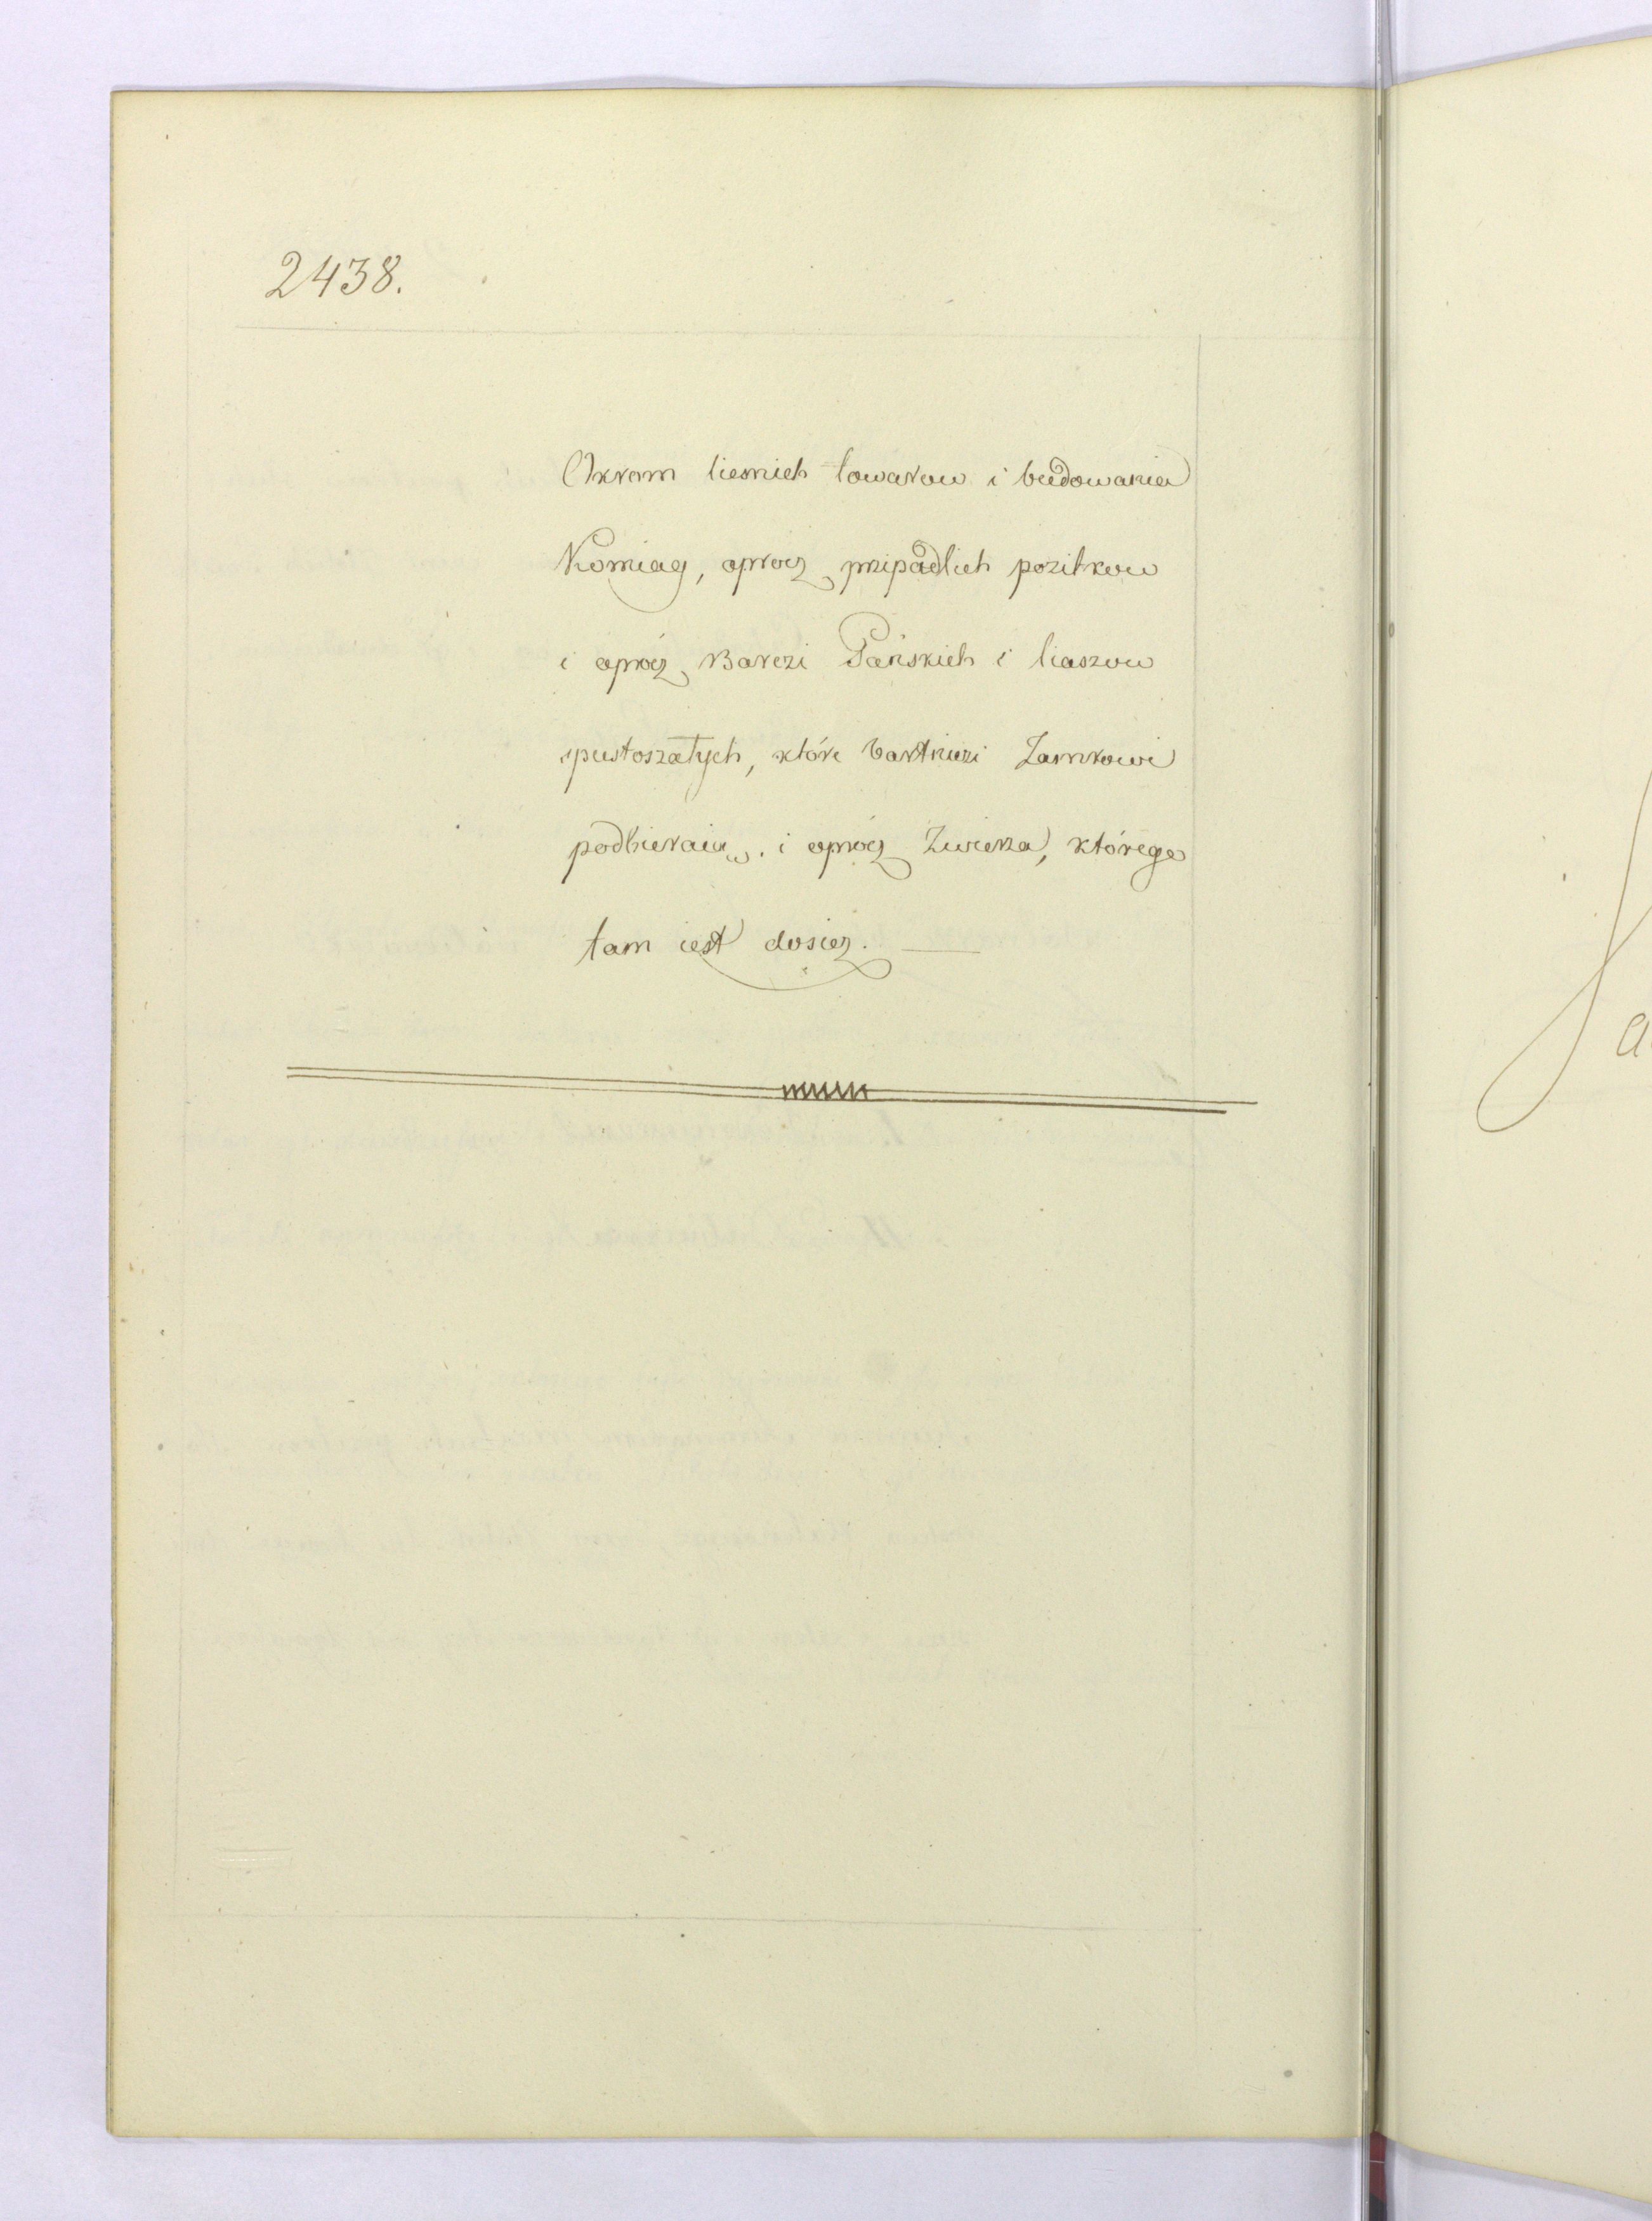 2438.
Okrom liesnich towarow i budowania
Komiag, oprocz pripadlich pozitkow
i oprócz Barczi Pańskich i liaszow
spustoszałych, które bartnizi Zamkowi
podbieraią. i oprócz Zwierza, którego
tam iest dosicz.